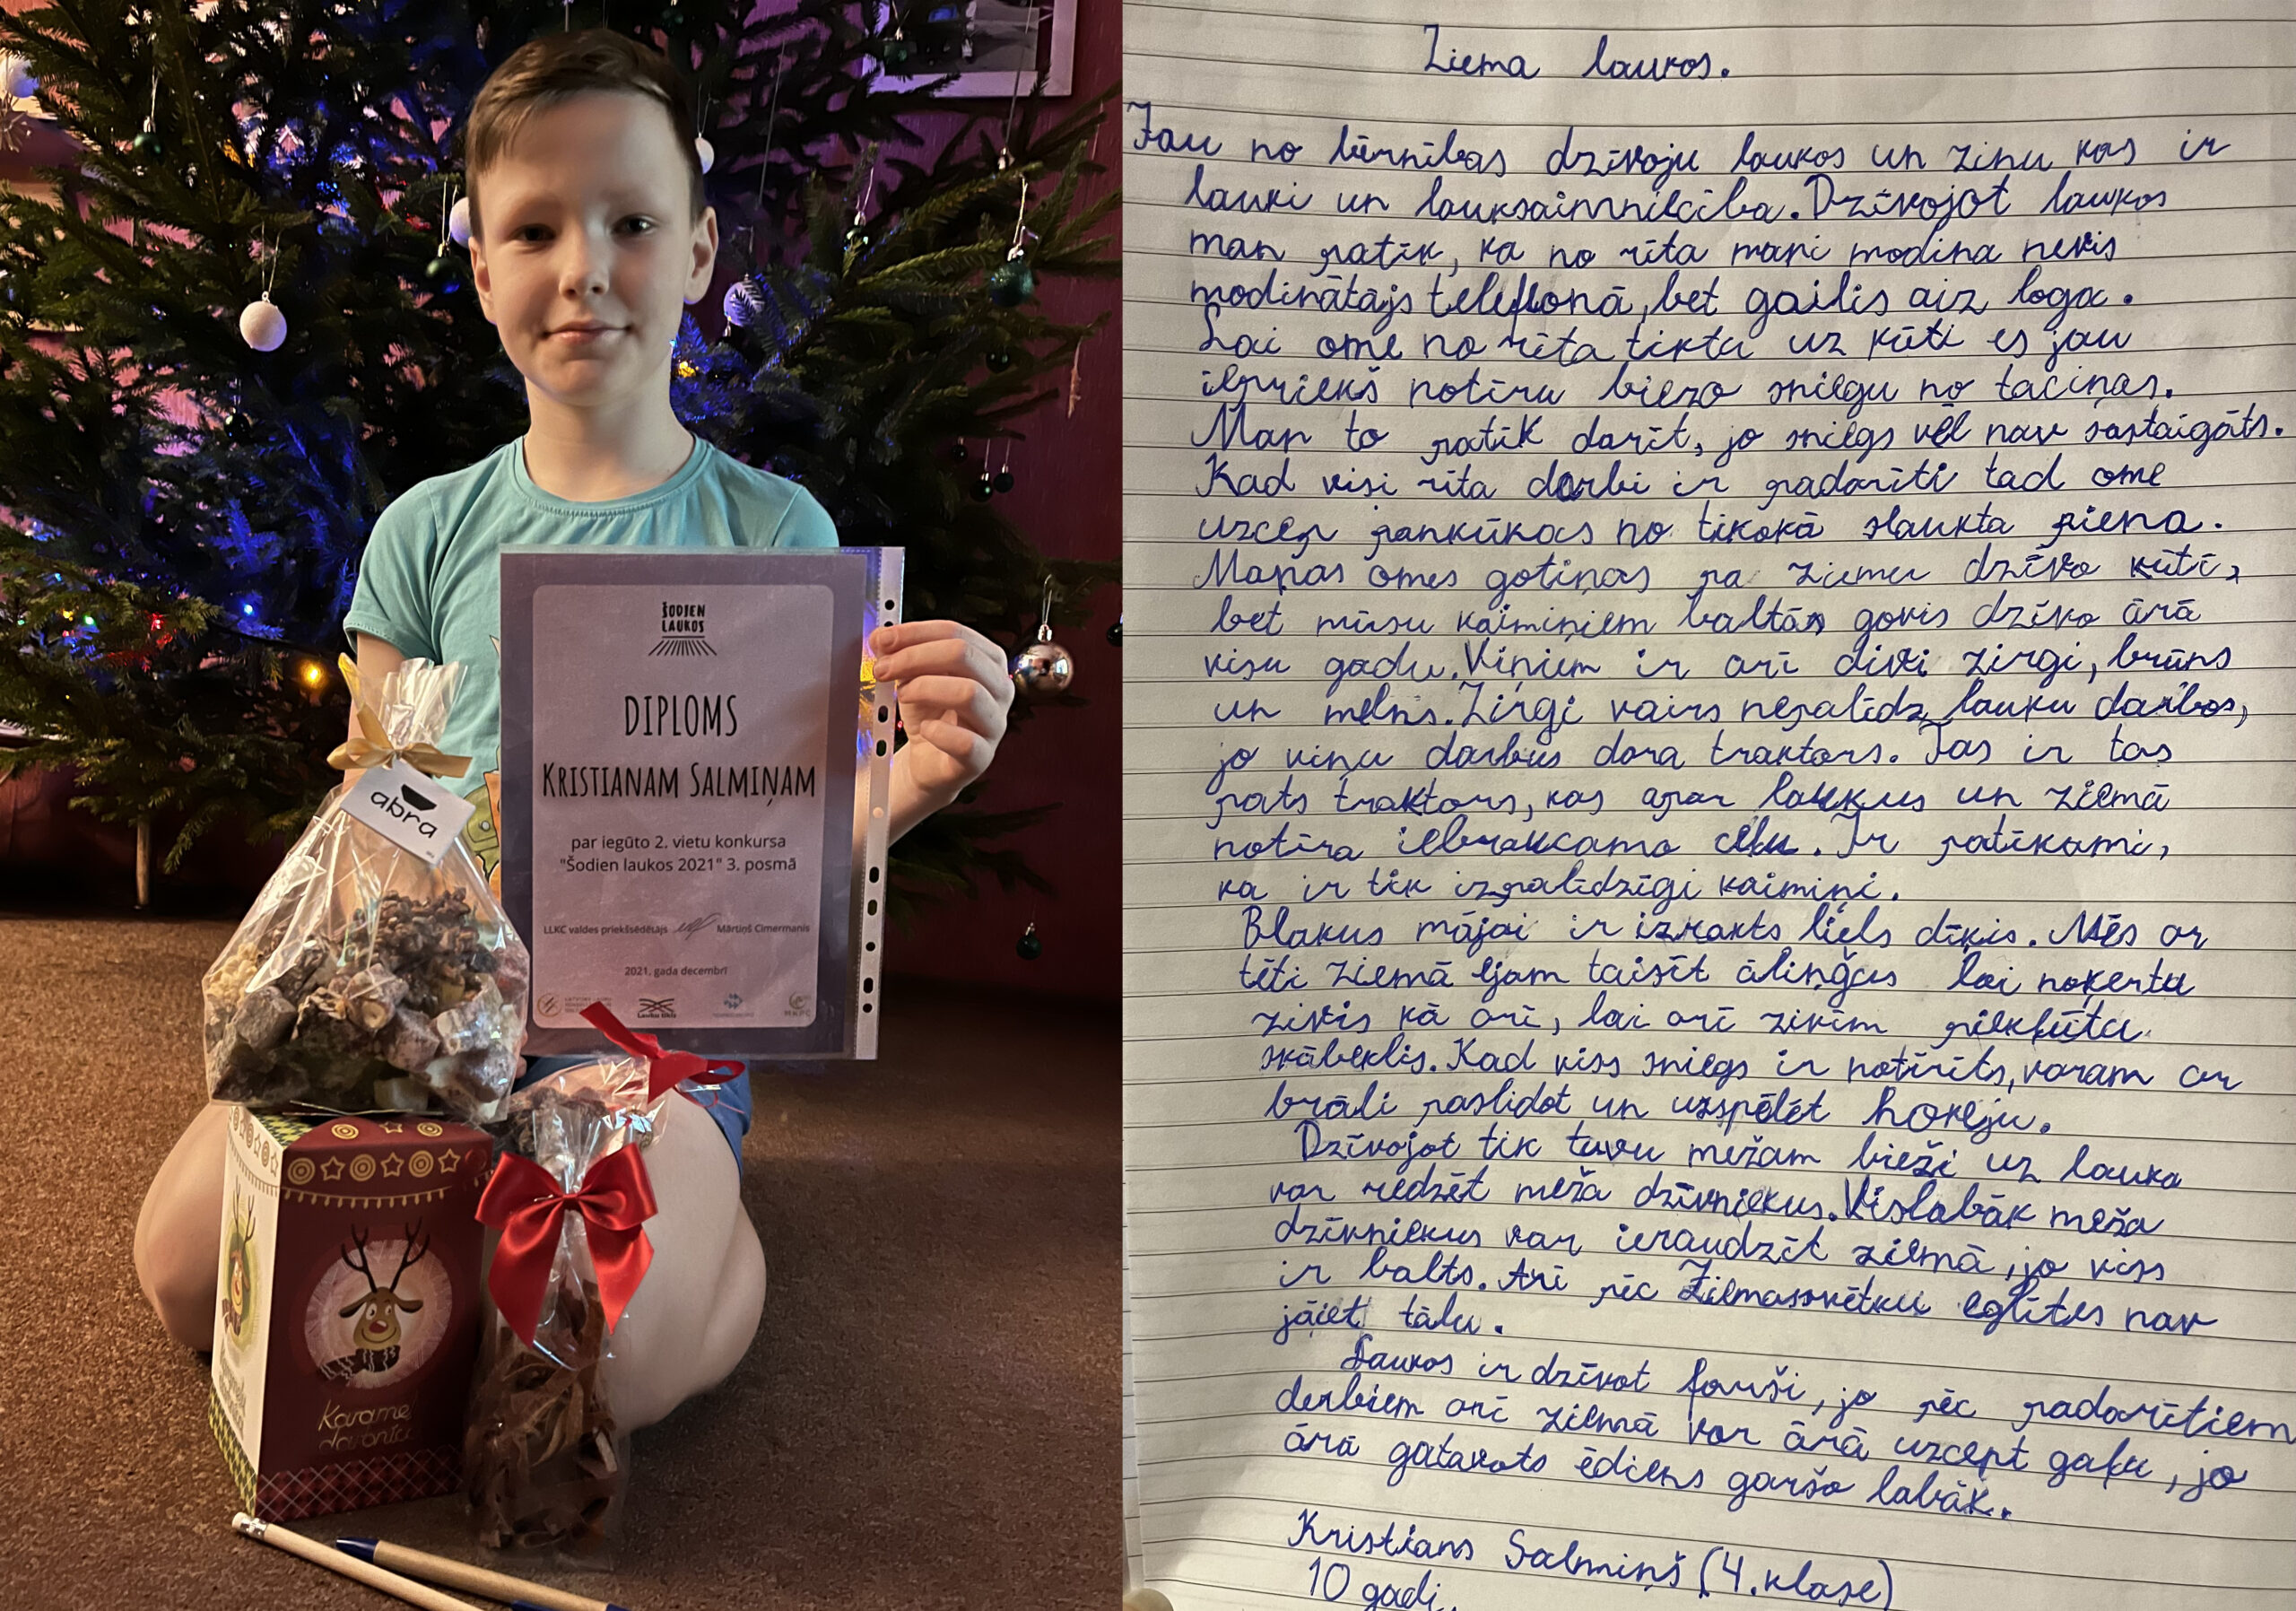 ŠODIEN
LAUKOS
DIPLOMS
KRISTIANAM SALMIŅAM
par iegūto 2. vietu konkursa
"Šodien laukos 2021" 3. posmā
LLKC valdes priekšsēdētājs Mārtiņš Cimermanis
2021. gada decembrī
abra
Karameļ
Ziema laukos.
Jau no bērnības dzīvoju laukos un zinu kas ir
lauki un lauksaimniecība. Dzīvojot laukos
man patīk, ka no rīta mani modina nevis
modinātājs telefonā, bet gailis aiz loga.
Lai ome no rīta tiktu uz kūti es jau
iepriekš notīru biezo sniegu no taciņas.
Man to patīk darīt, jo sniegs vēl nav sastaigāts.
Kad visi rīta darbi ir padarīti tad ome
uzcep pankūkas no tikokā slaukta piena.
Manas omes gotiņas pa ziemu dzīvo kūtī,
bet mūsu kaimiņiem baltās govis dzīvo ārā
visu gadu. Viņiem ir arī divi zirgi, brūns
un melns. Zirgi vairs nepalīdz lauku darbos,
jo viņu darbus dara traktors. Tas ir tas
pats traktors, kas apar laukus un ziemā
notīra iebraucamo ceļu. Ir patīkami,
ka ir tik izpalīdzīgi kaimiņi.
Blakus mājai ir izrakts liels dīķis. Mēs ar
tēti ziemā ejam taisīt āliņģus lai noķertu
zivis kā arī, lai arī zivīm piekļūtu
skābeklis. Kad viss sniegs ir notīrīts, varam ar
brāli paslidot un uzspēlēt hokeju.
Dzīvojot tik tuvu mežam bieži uz lauka
var redzēt meža dzīvniekus. Vislabāk meža
dzīvniekus var ieraudzīt ziemā, jo viss
ir balts. Arī pēc Ziemassvētku eglītes nav
jāiet tālu.
Laukos ir dzīvot forši, jo pēc padarītiem
derbiem arī ziemā var ārā uzcept gaļu, jo
ārā gatavots ēdiens garšo labāk.
Kristians Salmiņš (4. klase)
10 gadi.